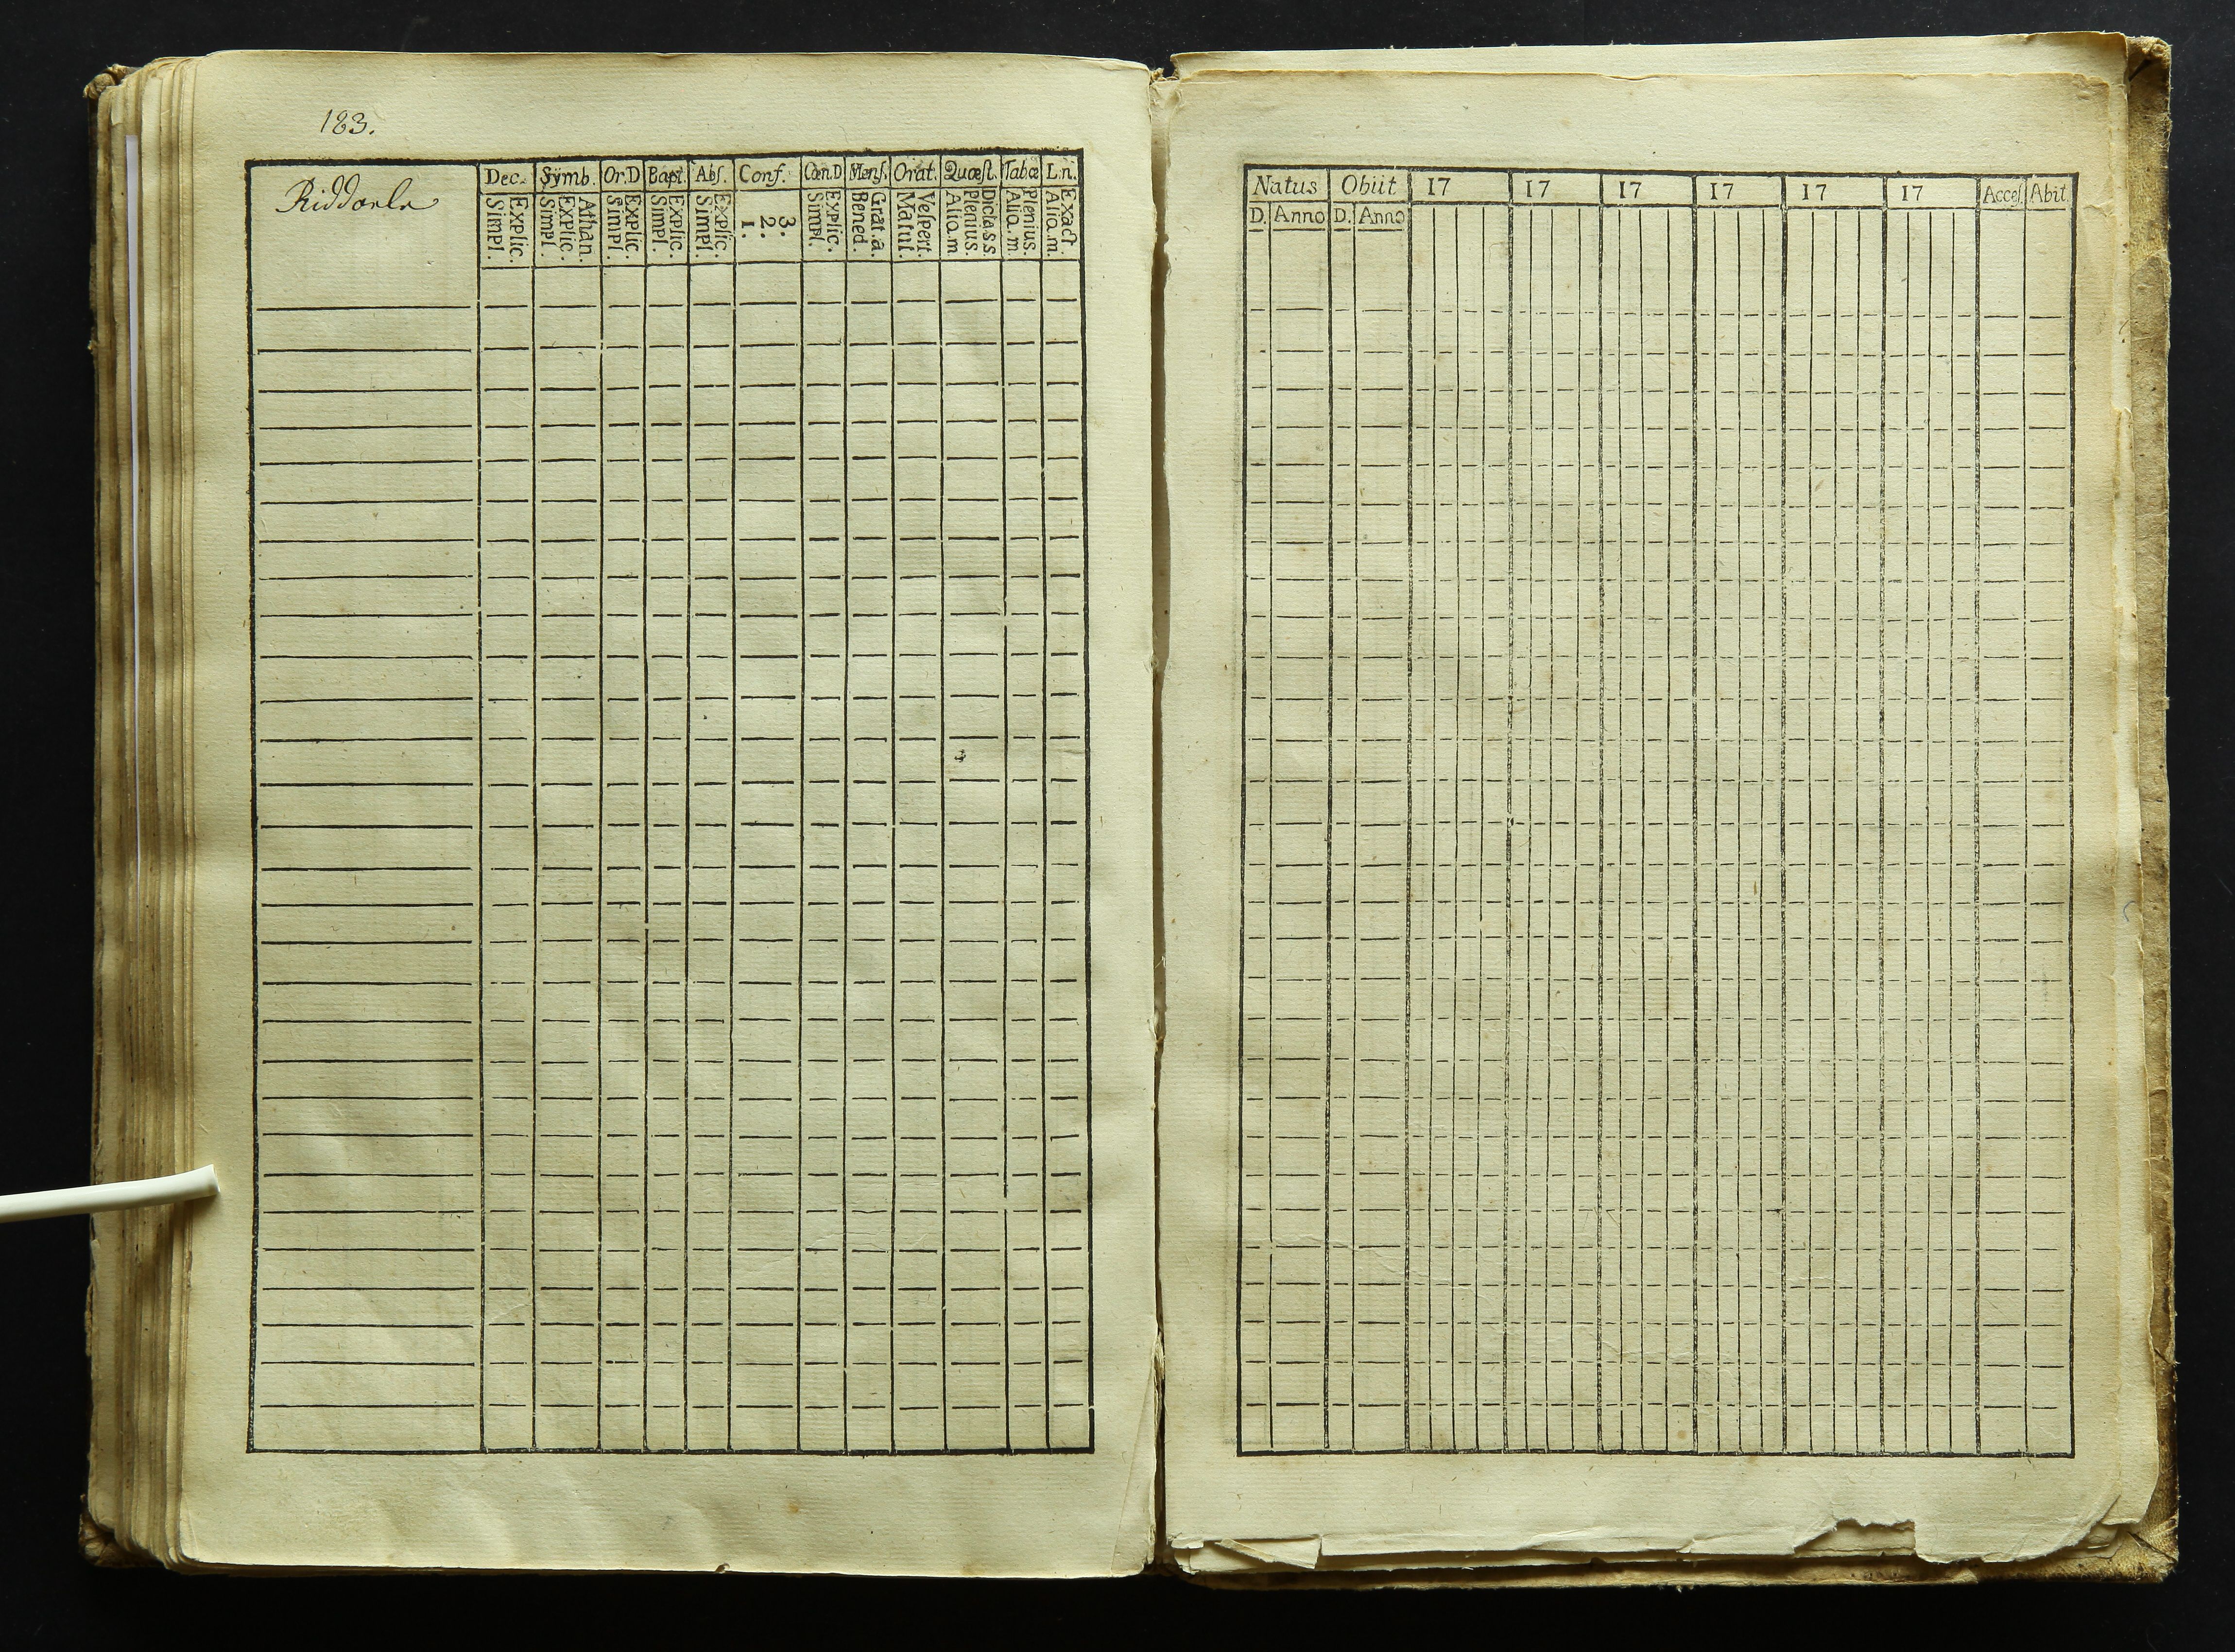 183.
Riddarla
Dec. Symb. Or.D Bapt. Abſ. Conf. Cœn.D Menſ. Orat. Quæſt. Tabæ L.n.
Explic. Simpl. Athan. Explic. Simpl. Explic. Simpl. Explic. Simpl. Explic. Simpl. 3. 2. 1. Explic. Simpl. Grat.a. Bened. Veſpert. Matut. Dictass Plenius. Aliq.m Plenius. Aliq.m Exact Aliq.m.
Natus Obiit 17 17 17 17 17 17 Acceſ. Abit.
D. Anno D. Anno